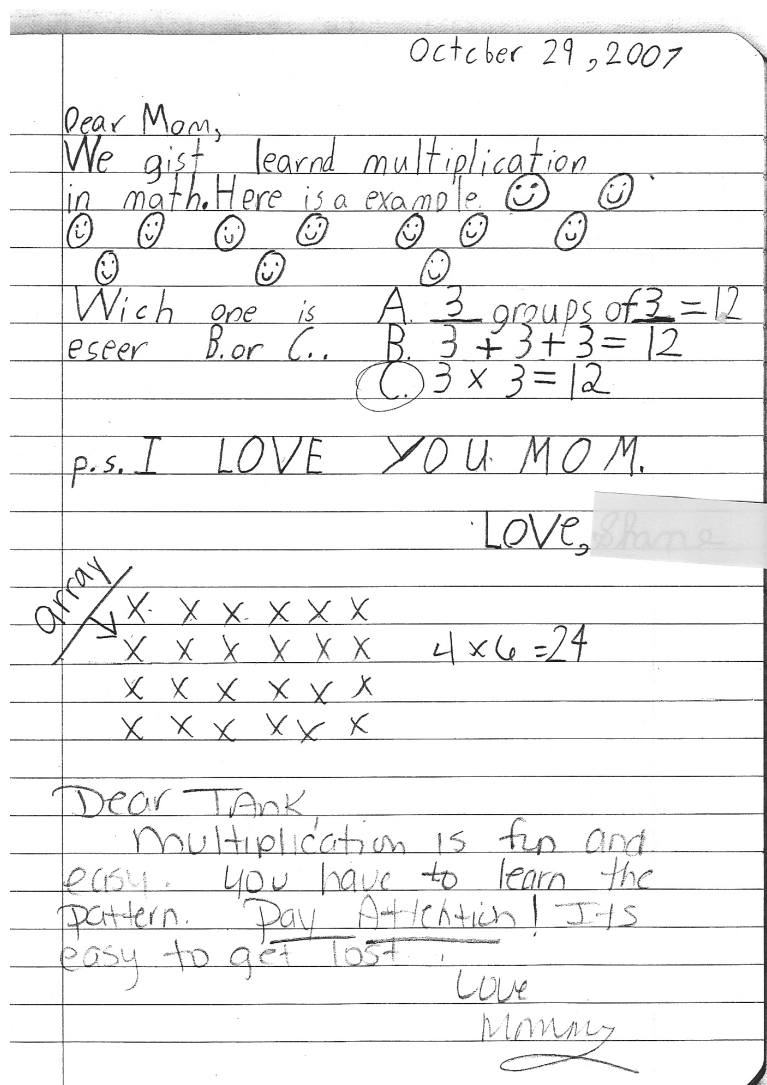 October 29, 2007
Dear Mom,
We gist learnd multiplication
in math. Here is a example.
Wich one is A. 3 groups of 3 = 12
eseer B. or C.. B. 3 + 3 + 3 = 12
C. 3 x 3 = 12
p.s. I LOVE YOU MOM.
LOVE, Shane
array
X X X X X X
X X X X X X 4 x 6 = 24
X X X X X X
X X X X X X
Dear TAnk,
Multiplication is fun and
easy. You have to learn the
pattern. Pay Attention! Its
easy to get lost.
Love
Mommy